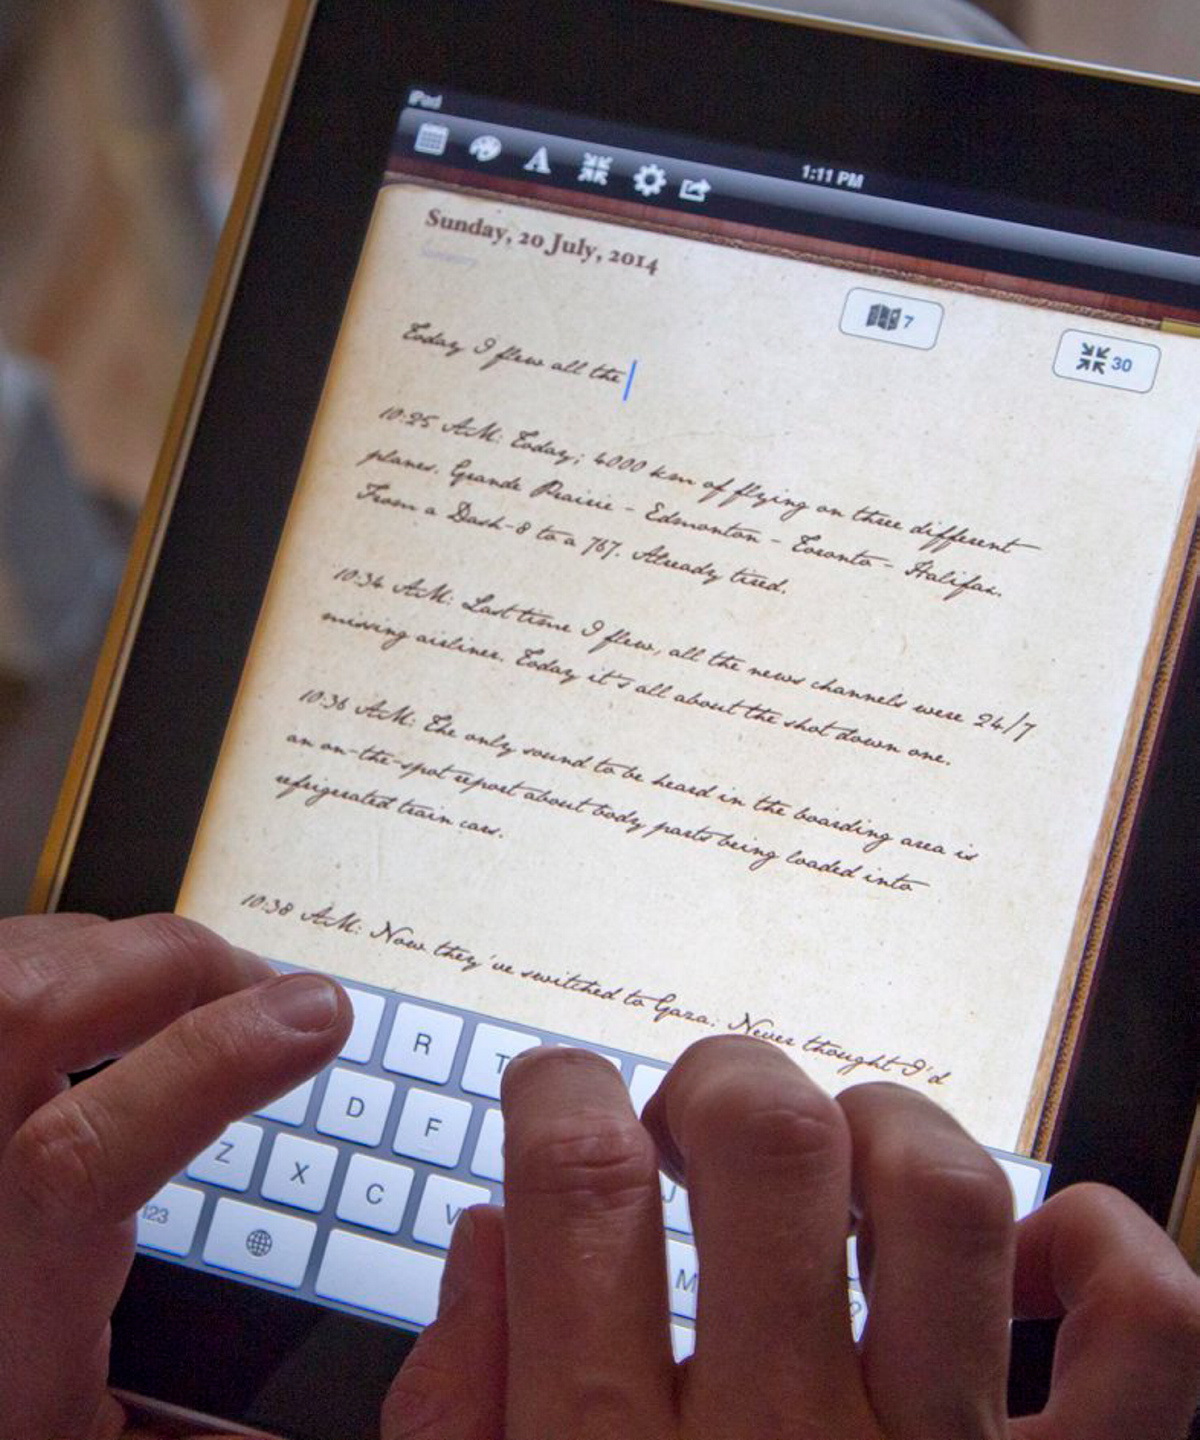 iPad
1:11 PM
Sunday, 20 July, 2014
Summary
7
30
Today I flew all the
10:25 AM: Today; 4000 km of flying on three different
planes. Grande Prairie - Edmonton - Toronto - Halifax.
From a Dash-8 to a 767. Already tired.
10:34 AM: Last time I flew, all the news channels were 24/7
missing airliner. Today it's all about the shot down one.
10:36 AM: The only sound to be heard in the boarding area is
an on-the-spot report about body parts being loaded into
refrigerated train cars.
10:38 AM: Now they've switched to Gaza. Never thought I'd
R T
D F J
Z X C V M
123